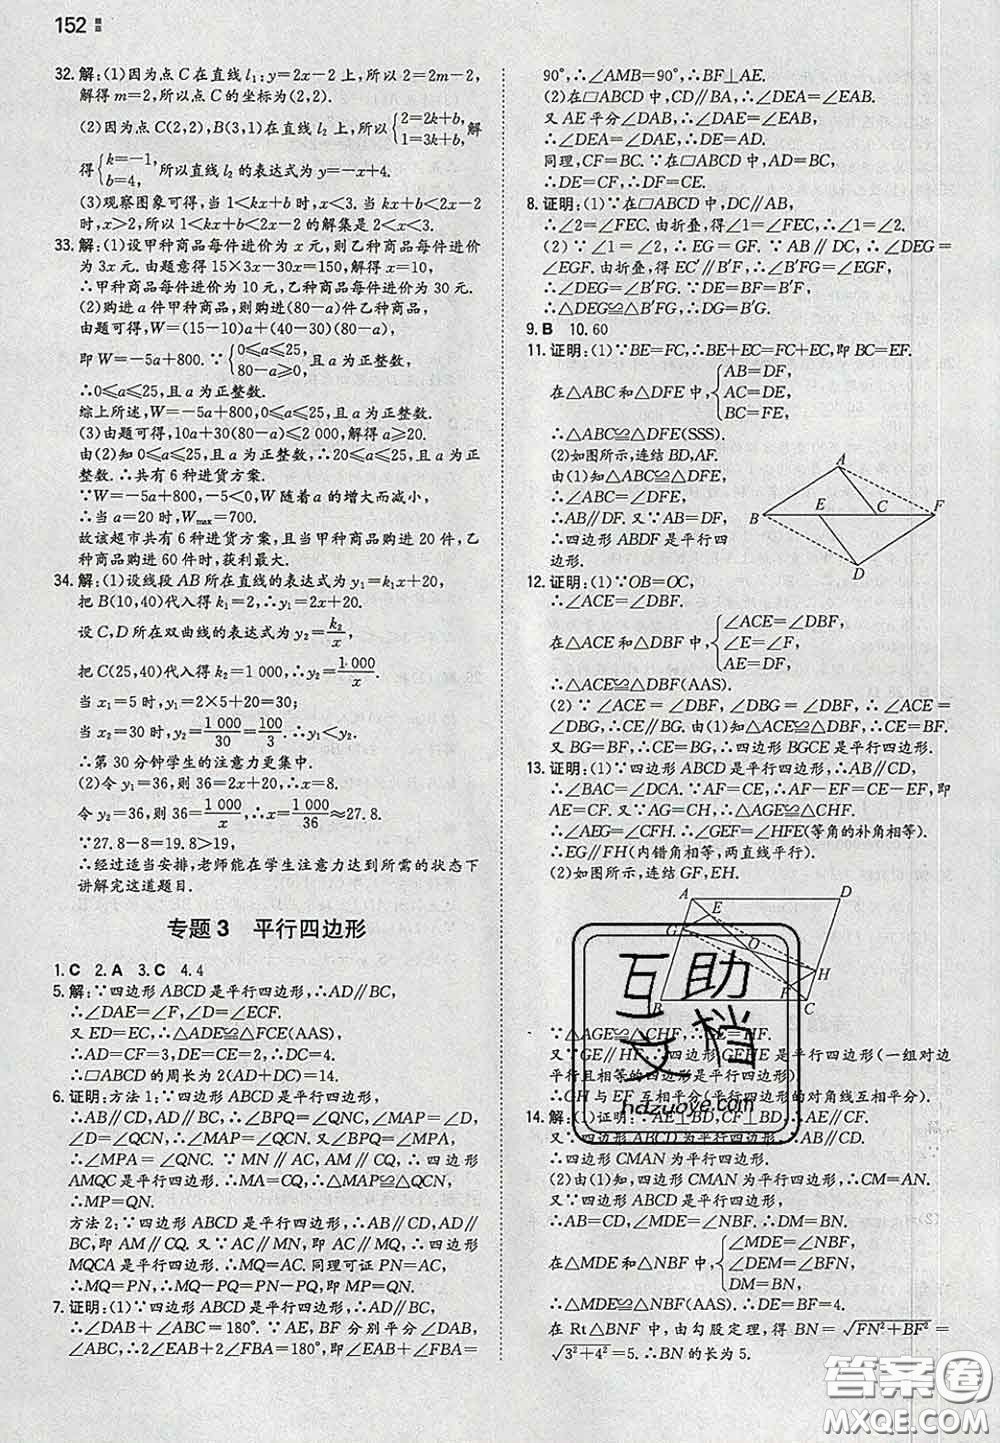 152
32.解:(1)因为点C在直线l₁:y=2x-2上,所以2=2m-2,
解得m=2,所以点C的坐标为(2,2).
(2)因为点C(2,2),B(3,1)在直线l₂上,所以{2=2k+b, 1=3k+b,解
得{k=-1, b=4,所以直线l₂的表达式为y=-x+4.
(3)观察图象可得,当1<kx+b时,x<3,当kx+b<2x-2
时,x>2,所以1<kx+b<2x-2的解集是2<x<3.
33.解:(1)设甲种商品每件进价为x元,则乙种商品每件进价
为3x元.由题意得15×3x-30x=150,解得x=10,
∴甲种商品每件进价为10元,乙种商品每件进价为30元.
(2)购进a件甲种商品,则购进(80-a)件乙种商品,
由题可得,W=(15-10)a+(40-30)(80-a),
即W=-5a+800.∵{0≤a≤25, 80-a≥0,且a为正整数,
∴0≤a≤25,且a为正整数.
综上所述,W=-5a+800,0≤a≤25,且a为正整数.
(3)由题可得,10a+30(80-a)≤2 000,解得a≥20.
由(2)知0≤a≤25,且a为正整数,∴20≤a≤25,且a为正
整数.∴共有6种进货方案.
∵W=-5a+800,-5<0,W随着a的增大而减小,
∴当a=20时,Wmax=700.
故该超市共有6种进货方案,且当甲种商品购进20件,乙
种商品购进60件时,获利最大.
34.解:(1)设线段AB所在直线的表达式为y₁=k₁x+20,
把B(10,40)代入得k₁=2,∴y₁=2x+20.
设C,D所在双曲线的表达式为y₂=k₂/x,
把C(25,40)代入得k₂=1 000,∴y₂=1 000/x.
当x₁=5时,y₁=2×5+20=30;
当x₂=30时,y₂=1 000/30=100/3,∴y₁<y₂.
∴第30分钟学生的注意力更集中.
(2)令y₁=36,则36=2x+20,∴x=8.
令y₂=36,则36=1 000/x,∴x=1 000/36≈27.8.
∵27.8-8=19.8>19,
∴经过适当安排,老师能在学生注意力达到所需的状态下
讲解完这道题目.
专题3 平行四边形
1.C 2.A 3.C 4.4
5.解:∵四边形ABCD是平行四边形,∴AD∥BC,
∴∠DAE=∠F,∠D=∠ECF.
又ED=EC,∴△ADE≌△FCE(AAS).
∴AD=CF=3,DE=CE=2,∴DC=4.
∴□ABCD的周长为2(AD+DC)=14.
6.证明:方法1:∵四边形ABCD是平行四边形,
∴AB∥CD,AD∥BC.∴∠BPQ=∠QNC,∠MAP=∠D,
∠D=∠QCN,∴∠MAP=∠QCN.又∵∠BPQ=∠MPA,
∴∠MPA=∠QNC.∵MN∥AC,AM∥CQ,∴四边形
AMQC是平行四边形.∴MA=CQ,∴△MAP≌△QCN,
∴MP=QN.
方法2:∵四边形ABCD是平行四边形,∴AB∥CD,AD∥
BC,即AM∥CQ.又∵AC∥MN,即AC∥MQ,∴四边形
MQCA是平行四边形.∴MQ=AC.同理可证PN=AC,
∴MQ=PN,∴MQ-PQ=PN-PQ,即MP=QN.
7.证明:(1)∵四边形ABCD是平行四边形,∴AD∥BC,
∴∠DAB+∠ABC=180°.∵AE,BF分别平分∠DAB,
∠ABC,∴2∠EAB+2∠FBA=180°,即∠EAB+∠FBA=
90°,∴∠AMB=90°,∴BF⊥AE.
(2)在□ABCD中,CD∥BA,∴∠DEA=∠EAB.
又AE平分∠DAB,∴∠DAE=∠EAB,
∴∠DEA=∠DAE,∴DE=AD.
同理,CF=BC.∵在□ABCD中,AD=BC,
∴DE=CF,∴DF=CE.
8.证明:(1)∵在□ABCD中,DC∥AB,
∴∠2=∠FEC.由折叠,得∠1=∠FEC,∴∠1=∠2.
(2)∵∠1=∠2,∴EG=GF.∵AB∥DC,∴∠DEG=
∠EGF.由折叠,得EC′∥B′F,∴∠B′FG=∠EGF,
∴∠DEG=∠B′FG.∵DE=BF=B′F,
∴△DEG≌△B′FG,∴DG=B′G.
9.B 10.60
11.证明:(1)∵BE=FC,∴BE+EC=FC+EC,即BC=EF.
在△ABC和△DFE中,{AB=DF, AC=DE, BC=FE,
∴△ABC≌△DFE(SSS).
(2)如图所示,连结BD,AF.
由(1)知△ABC≌△DFE,
∴∠ABC=∠DFE,
∴AB∥DF.又∵AB=DF,
∴四边形ABDF是平行四
边形.
A
B
E
C
F
D
12.证明:(1)∵OB=OC,
∴∠ACE=∠DBF.
在△ACE和△DBF中,{∠ACE=∠DBF, ∠E=∠F, AE=DF,
∴△ACE≌△DBF(AAS).
(2)∵∠ACE=∠DBF,∠DBG=∠DBF,∴∠ACE=
∠DBG,∴CE∥BG.由(1)知△ACE≌△DBF,∴CE=BF.
又BG=BF,∴CE=BG,∴四边形BGCE是平行四边形.
13.证明:(1)∵四边形ABCD是平行四边形,∴AB∥CD,
∴∠BAC=∠DCA.∵AF=CE,∴AF-EF=CE-EF,即
AE=CF.又∵AG=CH,∴△AGE≌△CHF.
∴∠AEG=∠CFH.∴∠GEF=∠HFE(等角的补角相等).
∴EG∥FH(内错角相等,两直线平行).
(2)如图所示,连结GF,EH.
A
D
E
G
O
H
F
B
C
∵△AGE≌△CHF,∴GE=HF.
又∵GE∥HF,∴四边形GEHF是平行四边形(一组对边
平行且相等的四边形是平行四边形).
∴GH与EF互相平分(平行四边形的对角线互相平分).
14.解:(1)证明:∵AE⊥BD,CF⊥BD,∴AE∥CF.
又∵四边形ABCD为平行四边形,∴AB∥CD.
∴四边形CMAN为平行四边形.
(2)由(1)知,四边形CMAN为平行四边形,∴CM=AN.
又∵四边形ABCD为平行四边形,
∴AB=CD,∠MDE=∠NBF.∴DM=BN.
在△MDE和△NBF中,{∠MDE=∠NBF, ∠DEM=∠BFN, DM=BN,
∴△MDE≌△NBF(AAS).∴DE=BF=4.
在Rt△BNF中,由勾股定理,得BN=√(FN²+BF²)=
√(3²+4²)=5.∴BN的长为5.
互助
文档
hdzuoye.com
答案圈
MXQE.COM